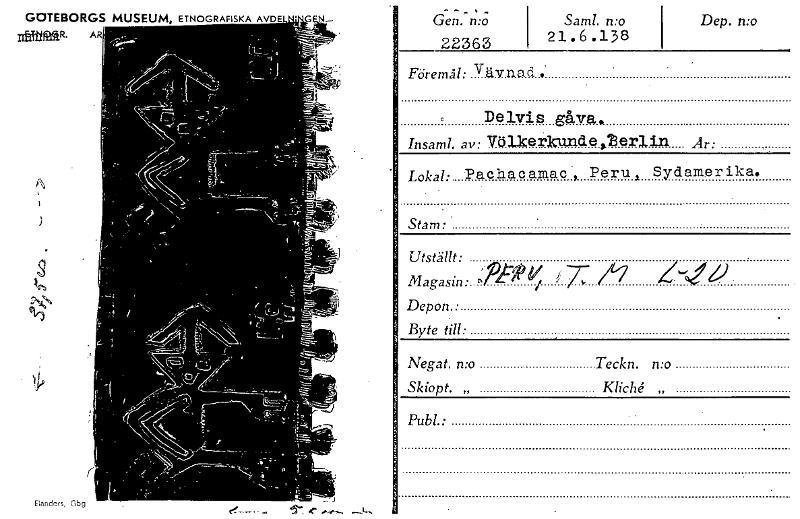 GÖTEBORGS MUSEUM, ETNOGRAFISKA AVDELNINGEN
ETNOGR. AR
37,5 cm.
Elanders, Gbg
Gen. n:o Saml. n:o Dep. n:o
22363 21.6.138
Föremål: Vävnad.
Delvis gåva.
Insaml. av: Völkerkunde,Berlin År:
Lokal: Pachacamac, Peru, Sydamerika.
Stam:
Utställt:
Magasin: PERU, T. M L-20
Depon.:
Byte till:
Negat. n:o Teckn. n:o
Skiopt. „ Kliché „
Publ.: